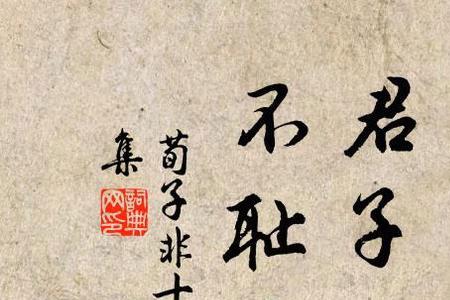 君子
不耻
荀子非十
集
詞典网印